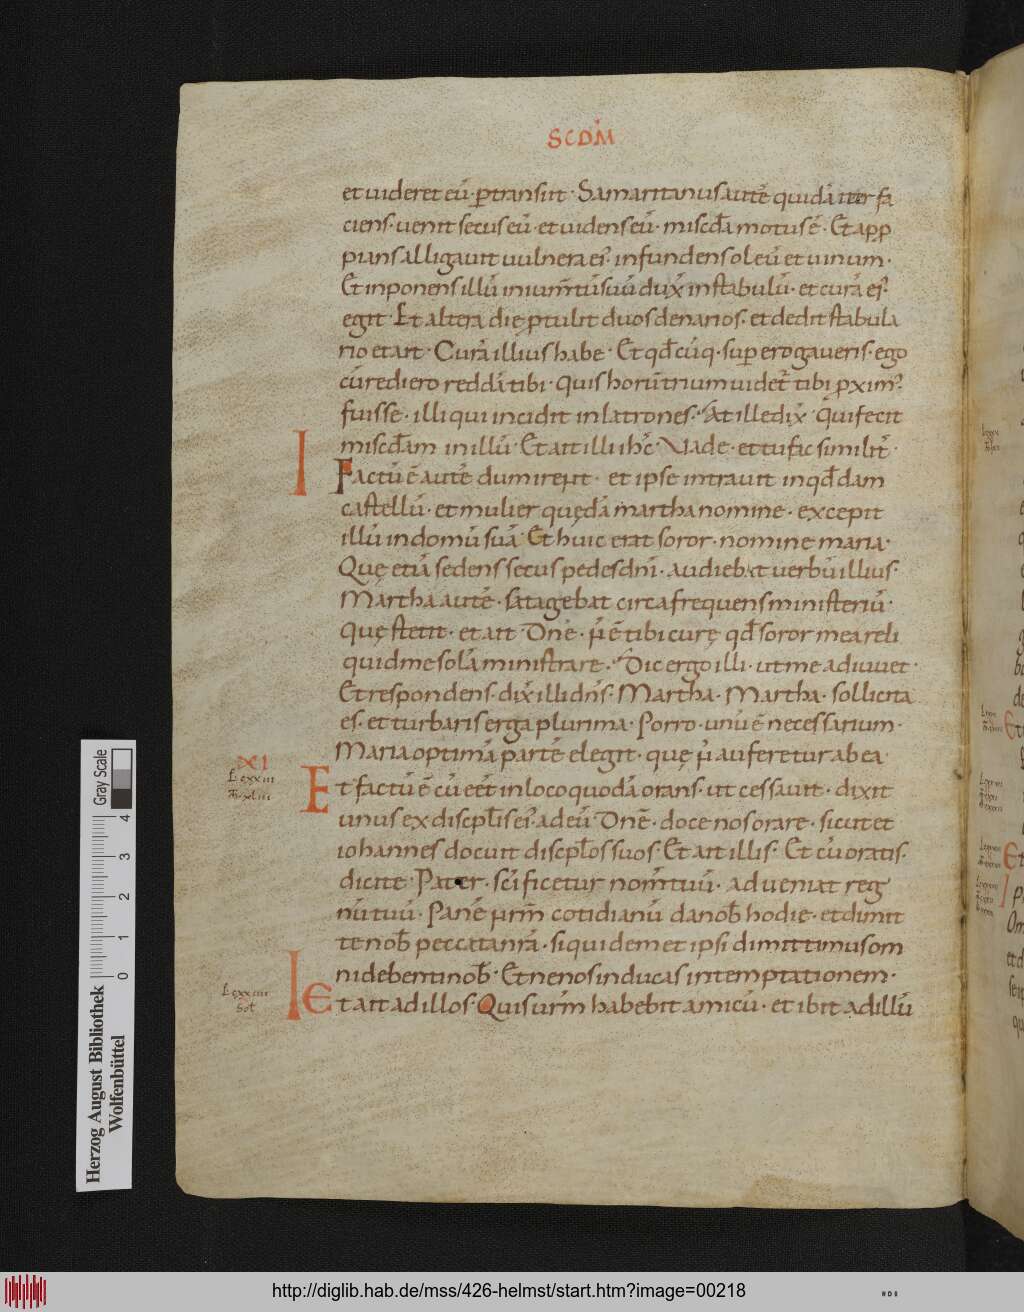 SCDM̄
et uideret eū· ꝑtransiit· Samaritanus autē quidā iter fa
ciens· uenit secus eū· et uidens eū· miscd̄a motus ē· Et app̱
pians alligauit uulnera ei᷒· infundens oleū et uinum·
Et inponens illū in ium̄tū suū dux̄ in stabulū· et curā ei᷒·
egit· Et altera die ꝓtulit duos denarios· et dedit stabula
rio et ait· Curā illius habe· Et qd̄cūq· supererogaueris· ego
cū rediero reddā tibi· Quis horū trium uidet̄ tibi ꝓxim᷒
fuisse· illi qui incidit in latrones· At ille dix̄· Qui fecit
miscd̄am in illū· Et ait illi ih̄c· Vade· et tu fac similit̄·
I Factū ē autē dum irent· et ipse intrauit in qd̄dam
castellū· et mulier quędā martha nomine· excepit
illū in domū suā· Et huic erat soror· nomine maria·
Quę etiā sedens secus pedes dn̄i· audiebat uerbū illius·
Martha autē· satagebat circa frequens ministeriū·
Quę stetit· et ait· Dn̄e· n̄ ē tibi curę qd̄ soror mea reli
quid me solā ministrare· Dic ergo illi· ut me adiuuet·
Et respondens· dix̄ illi dn̄s· Martha· Martha· sollicita
es· et turbaris erga plurima· Porro· unū ē necessarium·
Maria optimā partē elegit· quę n̄ auferetur ab ea·
XI
Lc xxiii
Mt xliii
Et factū ē cū eēt in loco quodā orans· ut cessauit· dixit
unus ex discipl̄is ei᷒ ad eū Dn̄e· doce nos orare· sicut et
iohannes docuit discipl̄os suos· Et ait illis· Et cū oratis·
dicite· Pater· sc̄ificetur nom̄ tuū· adueniat reg
nū tuū· Panē nrm̄ cotidianū da nob̄ hodie· et dimit
te nob̄ peccata nrā· siquidem et ipsi dimittimus om
ni debenti nob̄· Et ne nos inducas in temptationem·
Lc xxiiii
Sol
I Et ait ad illos· Quis urm̄ habebit amicū· et ibit ad illū
Gray Scale
0 1 2 3 4
Herzog August Bibliothek
Wolfenbüttel
http://diglib.hab.de/mss/426-helmst/start.htm?image=00218